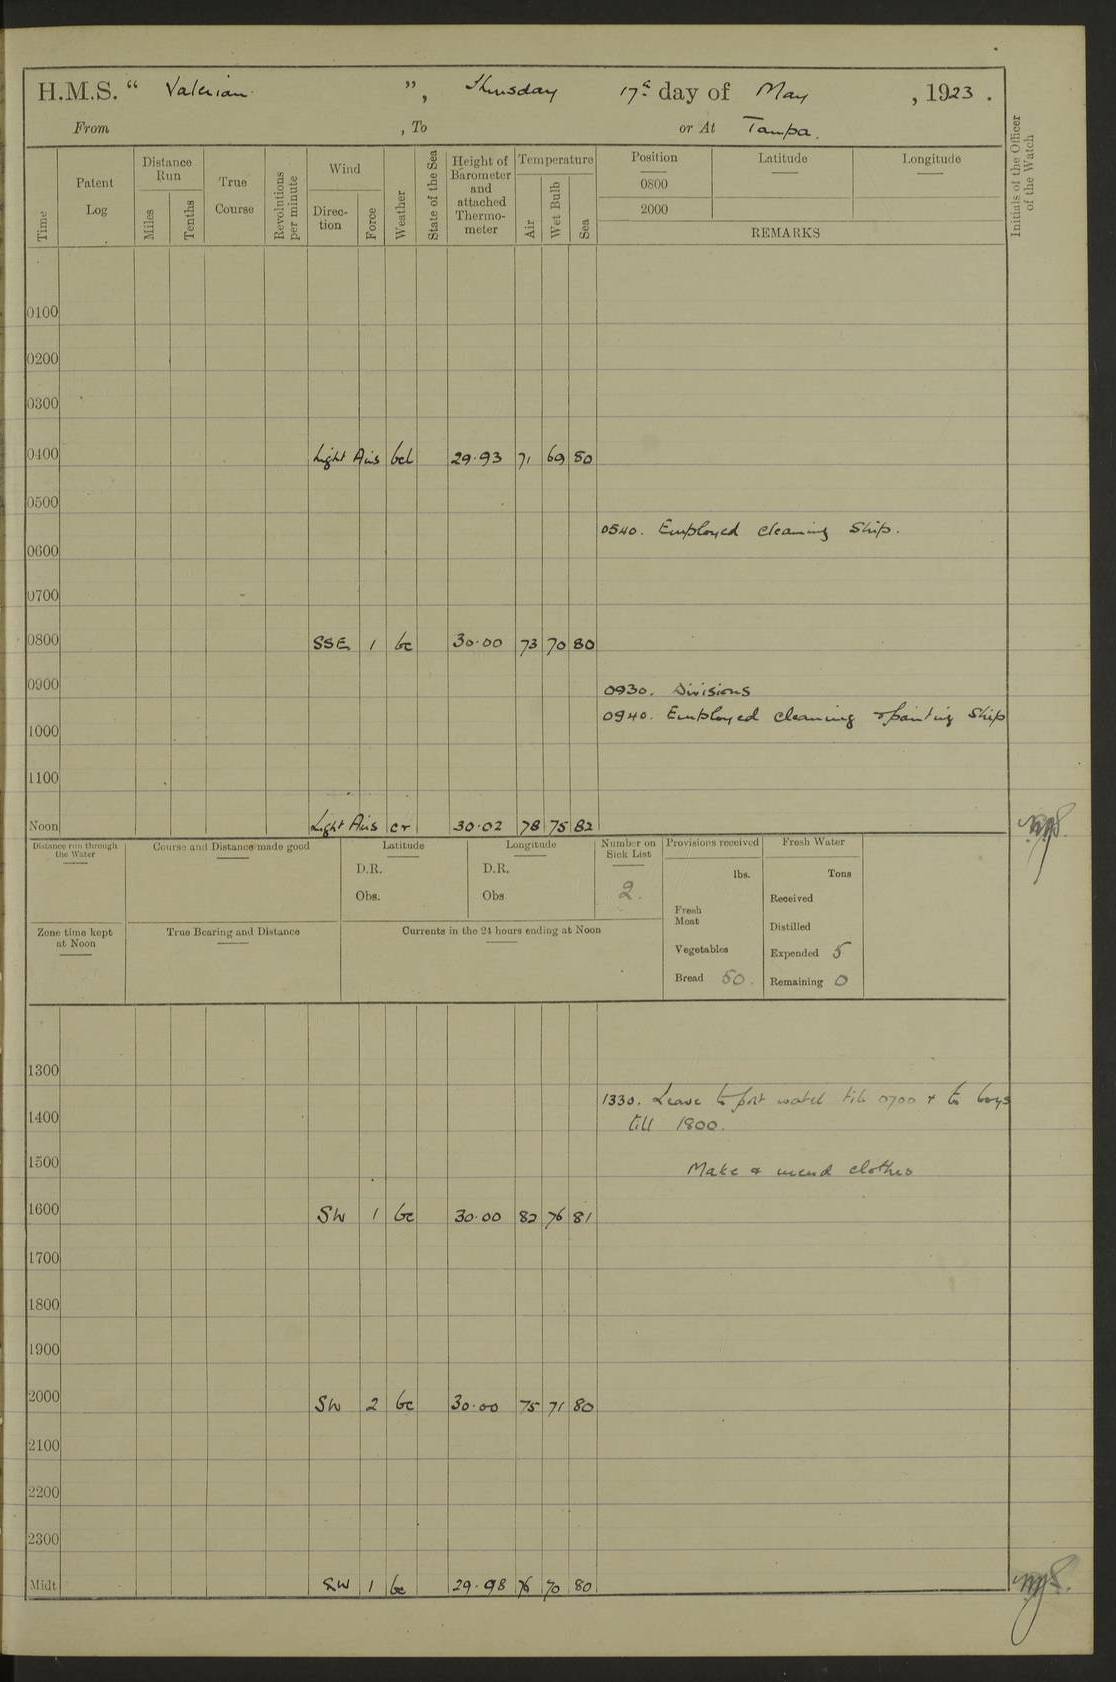 H.M.S. “ Valerian ”, Thursday 17th day of May , 1923 .
From , To or At Tampa.
Time
Patent Log
Distance Run
Miles
Tenths
True Course
Revolutions per minute
Wind
Direc-tion
Force
Weather
State of the Sea
Height of Barometer and attached Thermo-meter
Temperature
Air
Wet Bulb
Sea
Position
0800
2000
Latitude
Longitude
REMARKS
Initials of the Officer of the Watch
0100
0200
0300
0400 Light Airs bcl 29·93 71 69 80
0500
0540. Employed cleaning Ship.
0600
0700
0800 SSE 1 bc 30·00 73 70 80
0900
0930. Divisions
0940. Employed cleaning & painting Ship
1000
1100
Noon Light Airs cr 30·02 78 75 82
Distance run through the Water
Course and Distance made good
Latitude
D.R.
Obs.
Longitude
D.R.
Obs
Number on Sick List
2.
Provisions received
lbs.
Fresh Meat
Vegetables
Bread 50.
Fresh Water
Tons
Received
Distilled
Expended 5
Remaining 0
Zone time kept at Noon
True Bearing and Distance
Currents in the 24 hours ending at Noon
1300
1330. Leave to port watch till 0700 & to boys
1400
till 1800.
1500
Make & mend clothes
1600 SW 1 bc 30·00 82 76 81
1700
1800
1900
2000 SW 2 bc 30·00 75 71 80
2100
2200
2300
Midt SW 1 bc 29·98 76 70 80